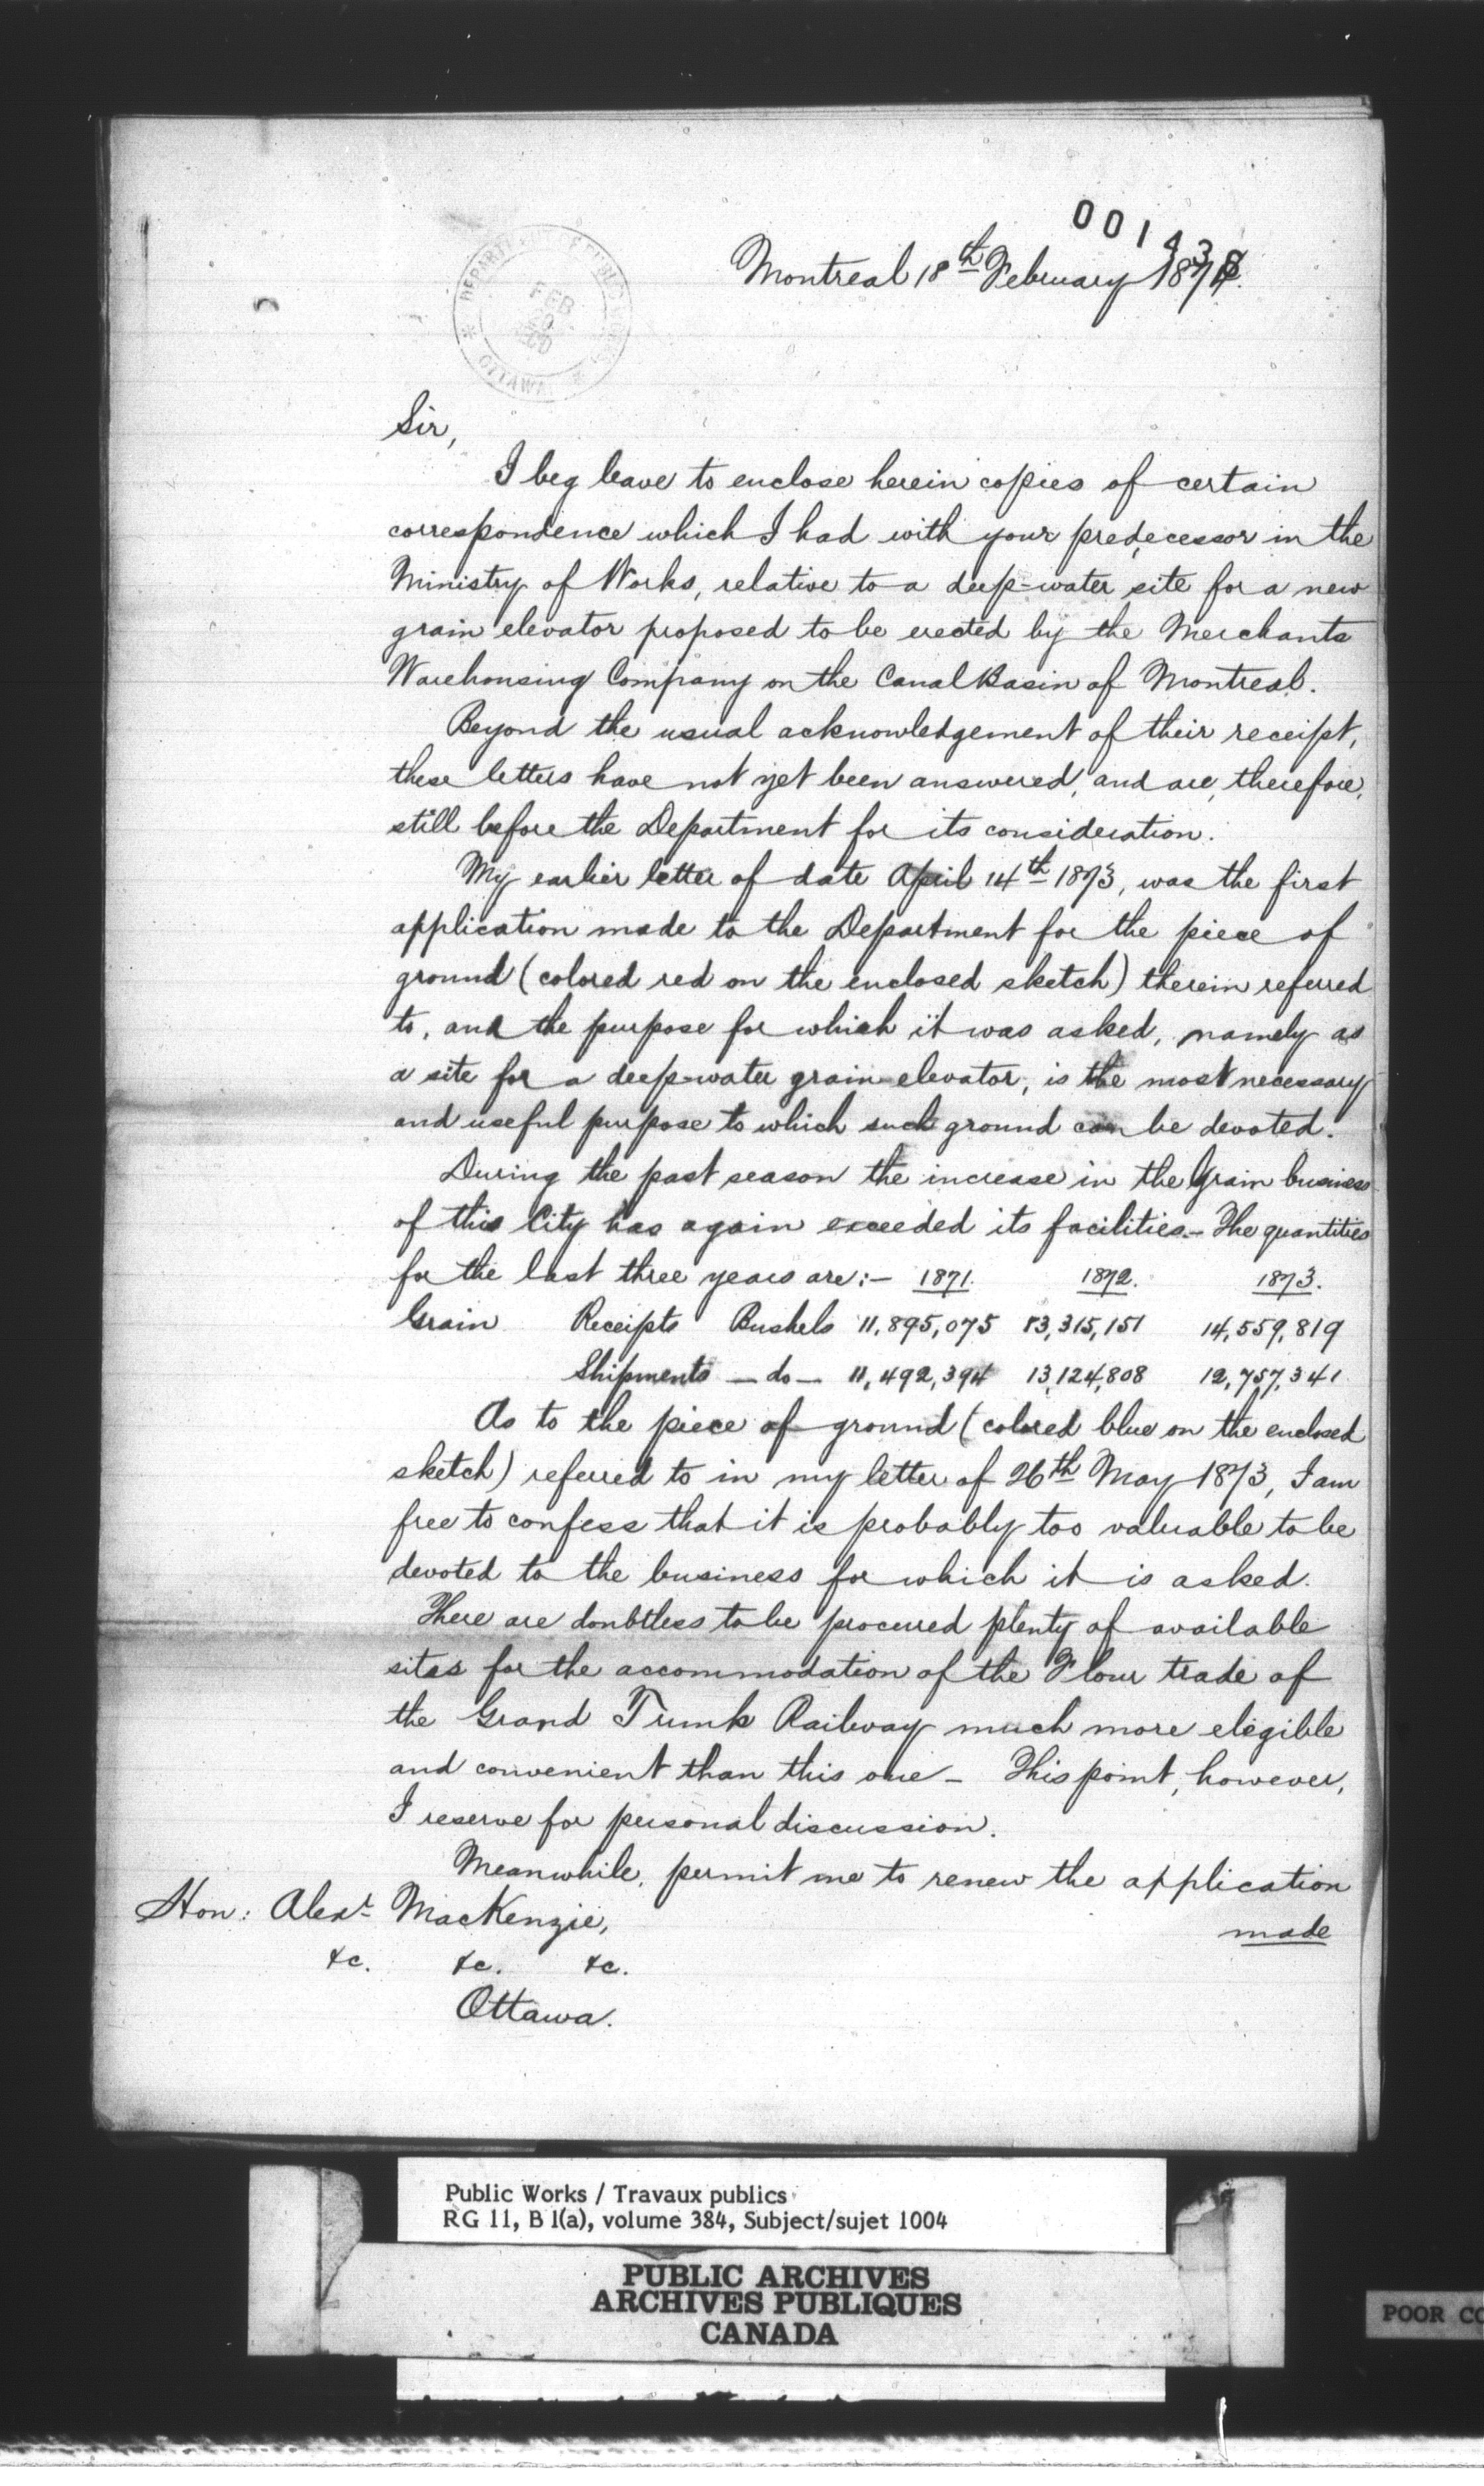 001438
Montreal 18th February 1874.
DEPARTMENT OF PUBLIC WORKS
FEB
OTTAWA
Sir,
I beg leave to enclose herein copies of certain
correspondence which I had with your predecessor in the
Ministry of Works, relative to a deep-water site for a new
grain elevator proposed to be erected by the Merchants
Warehousing Company on the Canal Basin of Montreal.
Beyond the usual acknowledgement of their receipt,
these letters have not yet been answered, and are, therefore,
still before the Department for its consideration.
My earlier letter of date April 14th 1873, was the first
application made to the Department for the piece of
ground (colored red on the enclosed sketch) therein referred
to, and the purpose for which it was asked, namely as
a site for a deep-water grain-elevator, is the most necessary
and useful purpose to which such ground can be devoted.
During the past season the increase in the Grain business
of this City has again exceeded its facilities.- The quantities
for the last three years are:- 1871. 1872. 1873.
Grain Receipts Bushels 11,895,075 13,315,151 14,559,819
Shipments - do - 11,492,394 13,124,808 12,757,341
As to the piece of ground (colored blue on the enclosed
sketch) referred to in my letter of 26th May 1873, I am
free to confess that it is probably too valuable to be
devoted to the business for which it is asked.
There are doubtless to be procured plenty of available
sites for the accommodation of the Flour trade of
the Grand Trunk Railway much more elegible
and convenient than this one - This point, however,
I reserve for personal discussion.
Meanwhile, permit me to renew the application
made
Hon: Alexr MacKenzie,
&c. &c. &c.
Ottawa.
Public Works / Travaux publics
RG 11, B 1(a), volume 384, Subject/sujet 1004
PUBLIC ARCHIVES
ARCHIVES PUBLIQUES
CANADA
POOR CO